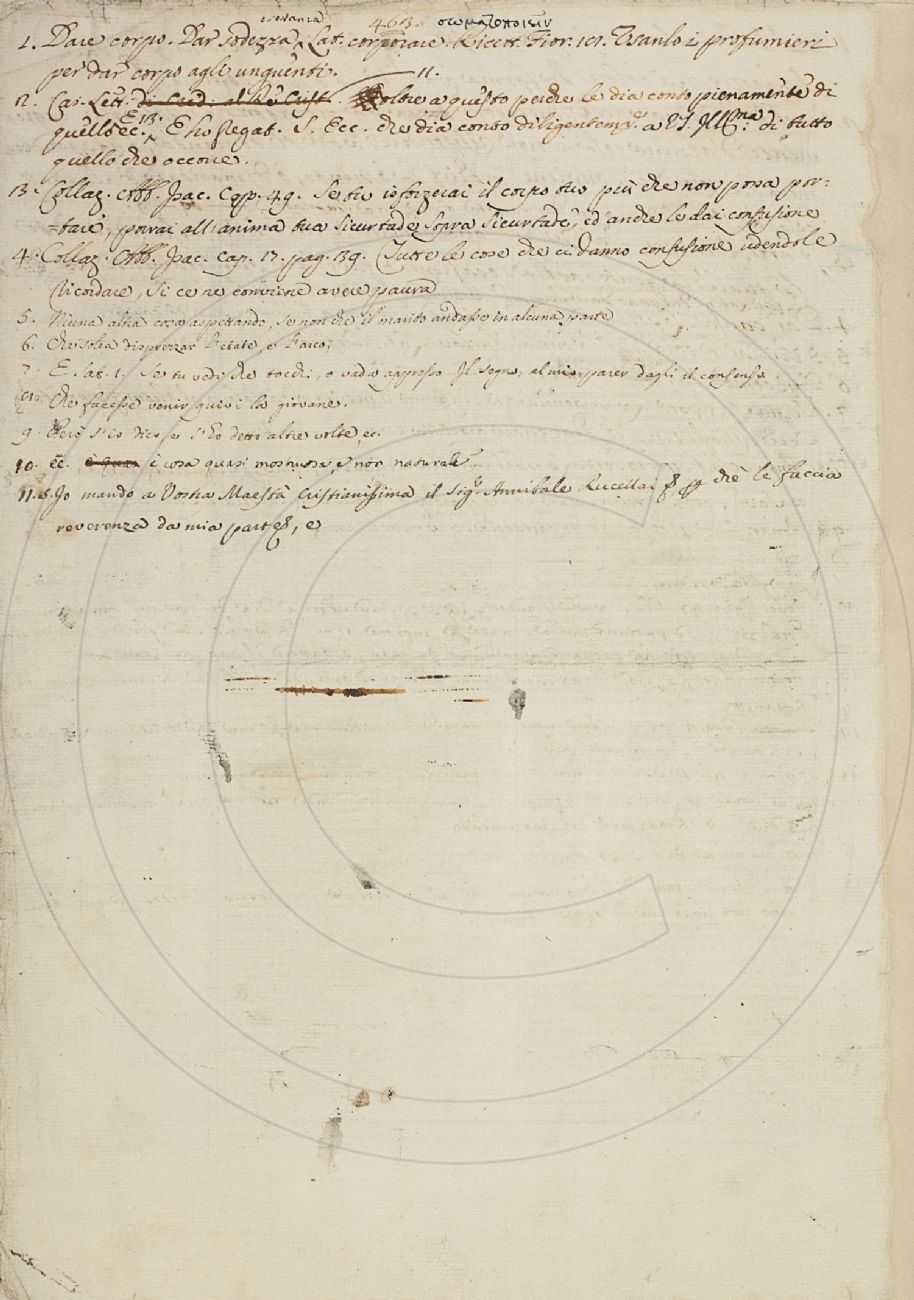 o sostanza 463. σωματοποιεῖν
1. Dare corpo. Dar sodezza, Lat. corporare. Ricett. Fior. 101. Usanlo i profumieri
per dar corpo agli unguenti. 11.
12. Cas. Lett. oltre a questo perchè le dia conto pienamente di
quello ec. E 13. E ho pregat. S. Ecc. che dia conto diligentem.e a V.S. Ill.ma di tutto
quello che occorre.
13. Collaz. Abb. Isac. Cap. 49. Se tu isforzerai il corpo tuo più che non possa por=
=tare, porrai all'anima tua sicurtade sopra sicurtade, ed anche le dai confusione
4. Collaz. Abb. Isac. Cap. 17. pag. 39. Tutte le cose che ci danno confusione udendole
ricordare, si ce ne conviene avere paura
5. Niuna altra cosa aspettando, se non che il marito andasse in alcuna parte
6. Che solea disprezzar l'etate, e l'arco;
7. E Sat. 1. Se tu vedi che tocchi, o vada appresso Il segno, al mio parer dagli il consenso
Che facesse venir quivi la giovane.
9. Però s'io dico, e s'ho detto altre volte, ec.
10. ec. è cosa quasi mostruosa, e non naturale
11. Io mando a Vostra Maestà Cristianissima il Sig.r Annibale Rucellai che le faccia
reverenza da mia parte, e